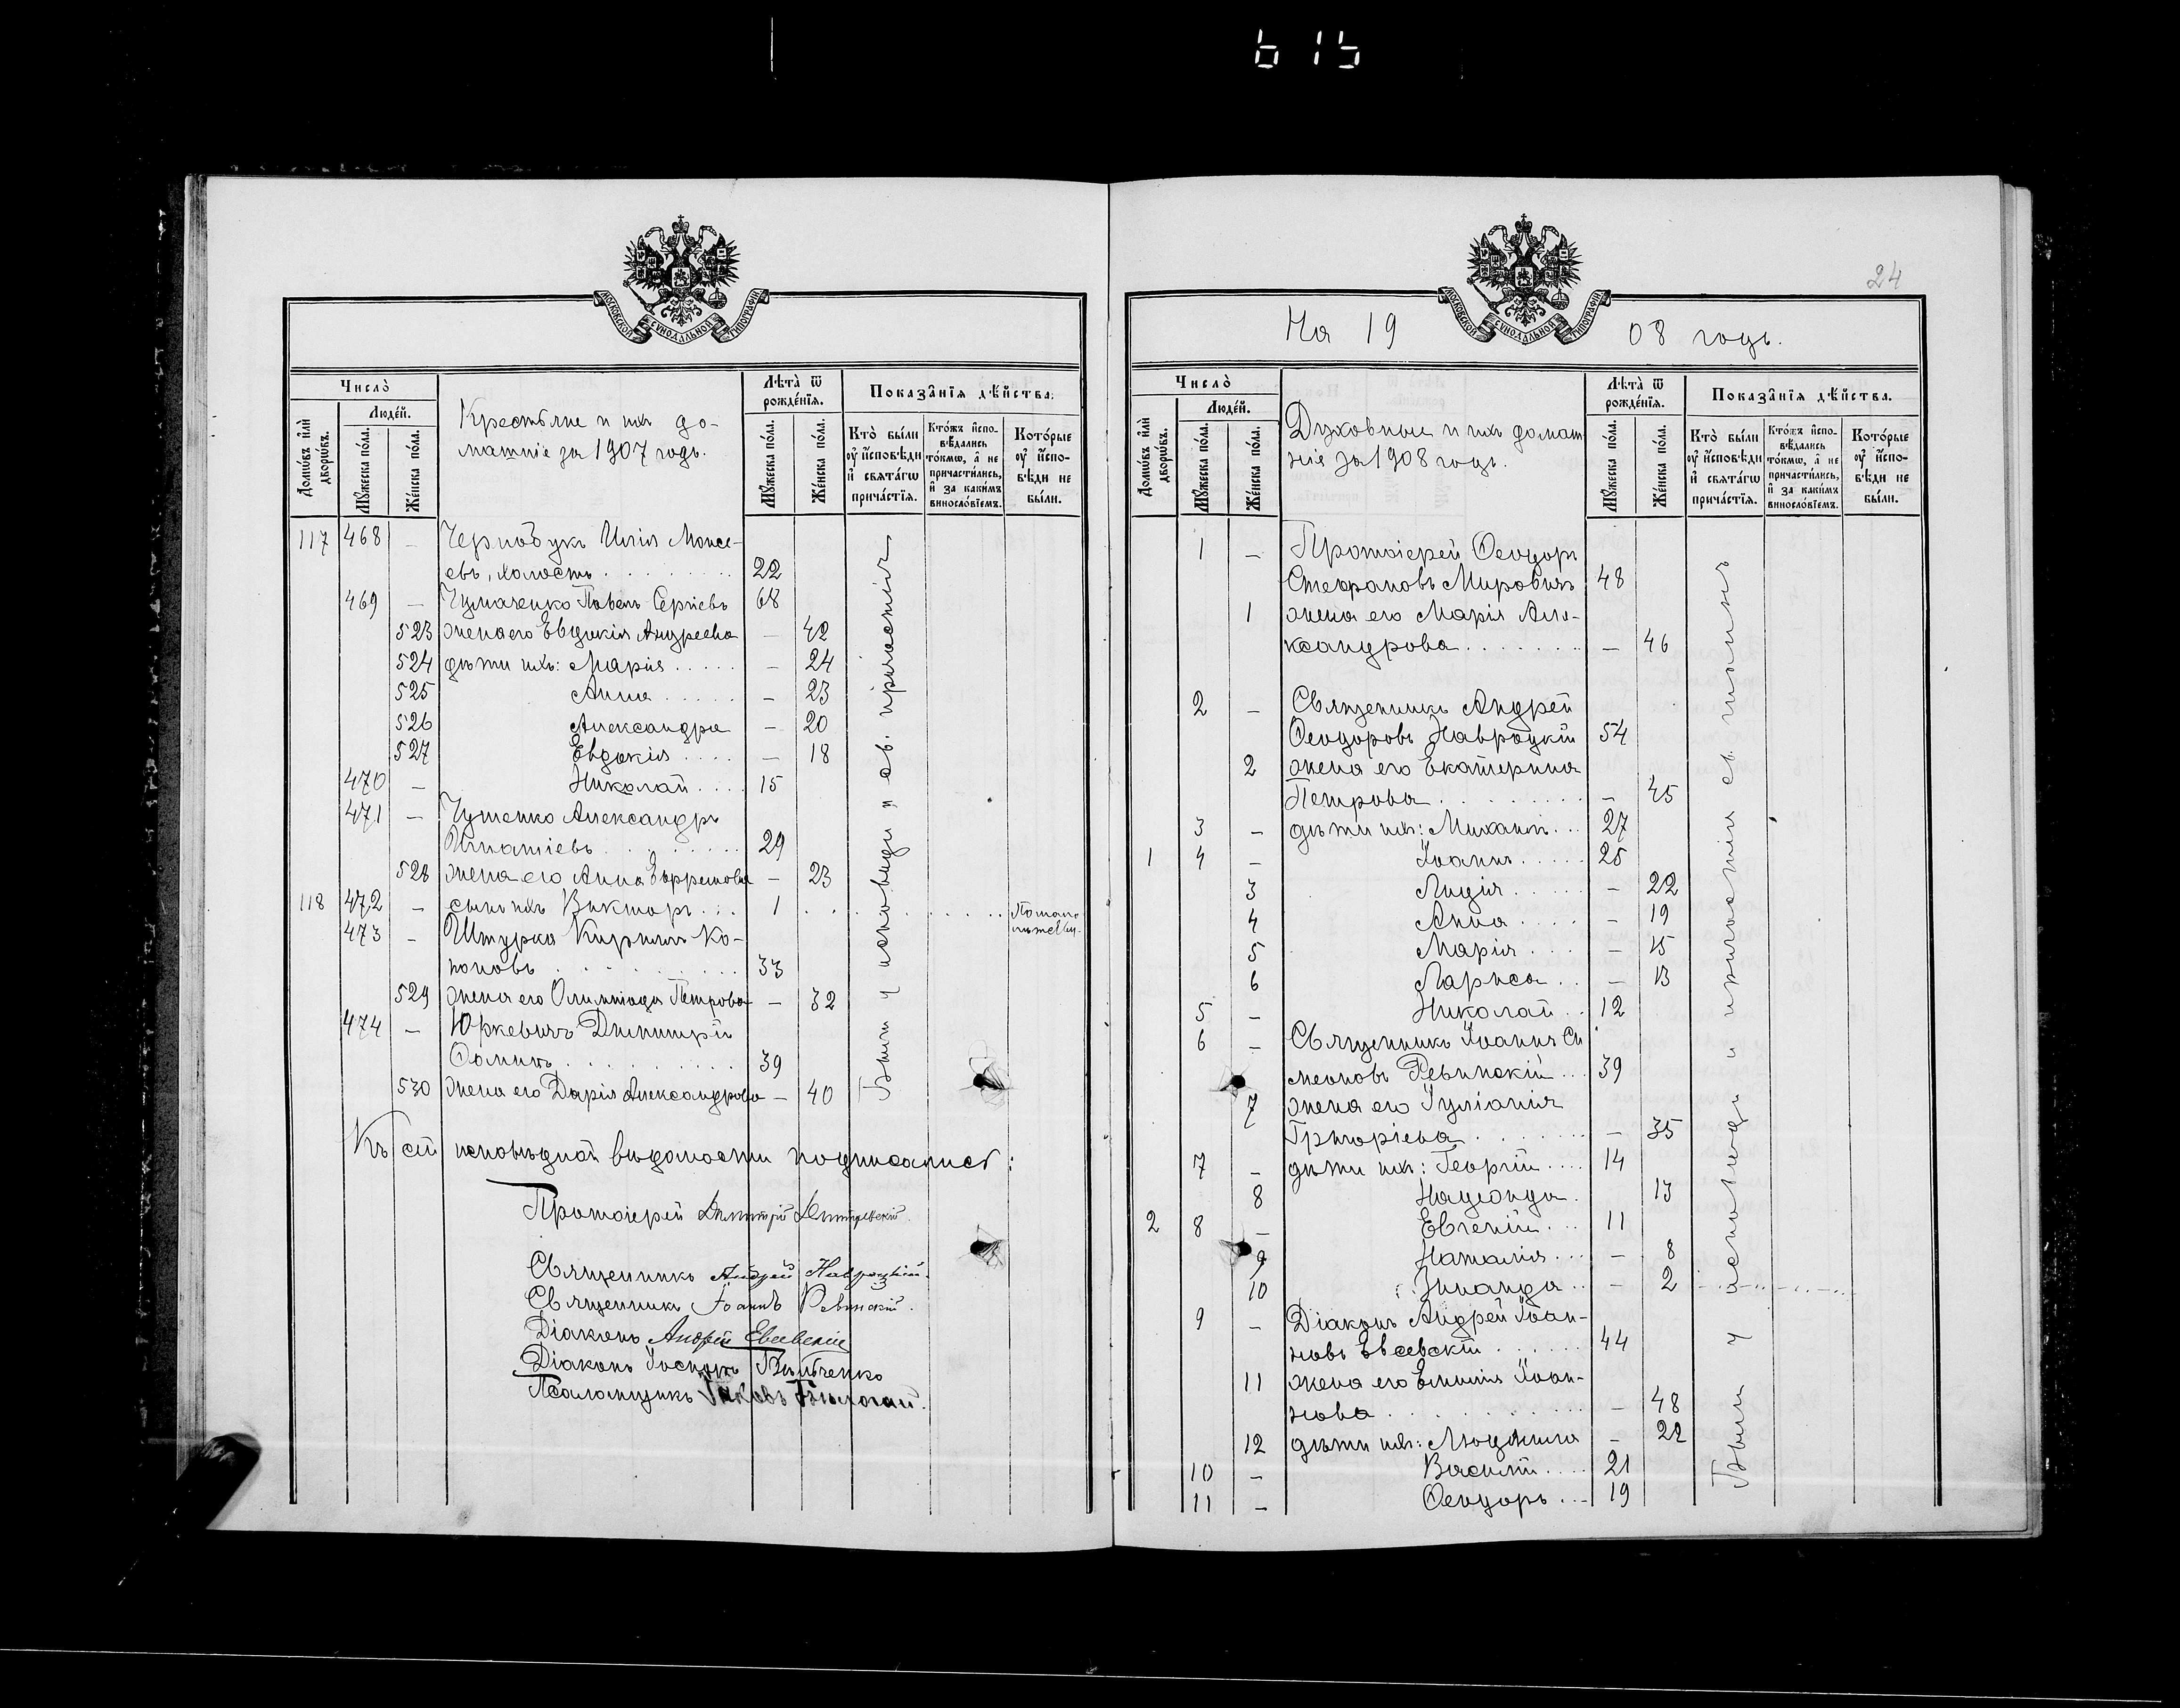 МОСКОВСКОЙ СѴНОДАЛЬНОЙ ТИПОГРАФІИ
Число̀
Домѡ́въ и҆лѝ дворѡ́въ.
Люде́й.
Мꙋ́жеска по́ла.
Же́нска по́ла.
Крестьяне и ихъ до-
машніе за 1907 годъ.
Лѣ́та ѿ рожде́нїѧ.
Мꙋ́жеска по́ла.
Же́нска по́ла.
Показа̑нїѧ дѣ́йства.
Кто̀ бы́ли ᲂу҆ и҆́сповѣди и҆ свѧта́гѡ прича́стїѧ.
Кто́жъ и҆сповѣ́дались то́кмѡ, а҆ не причасти́лись, и҆ за каки́мъ винослові́емъ.
Кото́рые ᲂу҆ и҆́сповѣди не бы́ли.
117 468 – Чернобукъ Илія Моисе-
евъ, холостъ 22
469 – Чумаченко Павелъ Сергіевъ 68
523 жена его Евдокія Андреева – 42
524 дѣти ихъ: Марія – 24
525 Анна – 23
526 Александра – 20
527 Евдокія – 18
470 – Николай 15
471 – Чушенко Александръ
Игнатіевъ 29
528 жена его Анна Ефремова – 23
118 472 – сынъ ихъ Викторъ 1 По мало-
лѣтству.
473 – Штурка Кириллъ Ко-
ноновъ 33
529 жена его Олимпіада Петрова – 32
474 – Юркевичъ Димитрій
Ѳоминъ 39
530 жена его Дарія Александрова – 40
Были у исповѣди и св. причастія
Къ сей исповѣдной вѣдомости подписались:
Протоіерей Димитрій
Священникъ Андрей Навроцкій.
Священникъ Іоаннъ Ревинскій.
Діаконъ Андрей Евсевскій
Діаконъ Іосифъ
Псаломщикъ Іаковъ
24
МОСКОВСКОЙ СѴНОДАЛЬНОЙ ТИПОГРАФІИ
На 19 08 годъ.
Число̀
Домѡ́въ и҆лѝ дворѡ́въ.
Люде́й.
Мꙋ́жеска по́ла.
Же́нска по́ла.
Духовные и ихъ домаш
ніе за 1908 годъ.
Лѣ́та ѿ рожде́нїѧ.
Мꙋ́жеска по́ла.
Же́нска по́ла.
Показа̑нїѧ дѣ́йства.
Кто̀ бы́ли ᲂу҆ и҆́сповѣди и҆ свѧта́гѡ прича́стїѧ.
Кто́жъ и҆сповѣ́дались то́кмѡ, а҆ не причасти́лись, и҆ за каки́мъ винослові́емъ.
Кото́рые ᲂу҆ и҆́сповѣди не бы́ли.
1 – Протоіерей Ѳеодоръ
Стефановъ Мировичъ 48
1 жена его Марія Але-
ксандрова – 46
2 – Священникъ Андрей
Ѳеодоровъ Навроцкій 54
2 жена его Екатерина
Петрова – 45
3 – дѣти ихъ: Михаилъ 27
1 4 – Іоаннъ 25
3 Лидія – 22
4 Анна – 19
5 Марія – 15
6 Лариса – 13
5 – Николай 12
6 – Священникъ Іоаннъ Си
меоновъ Ревинскій 39
7 жена его Іуліанія
Григоріева – 35
7 – дѣти ихъ: Георгій 14
8 Надежда 13
2 8 – Евгеній 11
9 Наталія – 8
10 Зинаида – 2
9 – Діаконъ Андрей Іоан-
новъ Евсевскій 44
11 жена его Емилія Іоан-
нова – 48
12 дѣти ихъ: Людмила – 22
10 – Василій 21
11 – Ѳеодоръ 19
Были у исповѣди и причастія св.